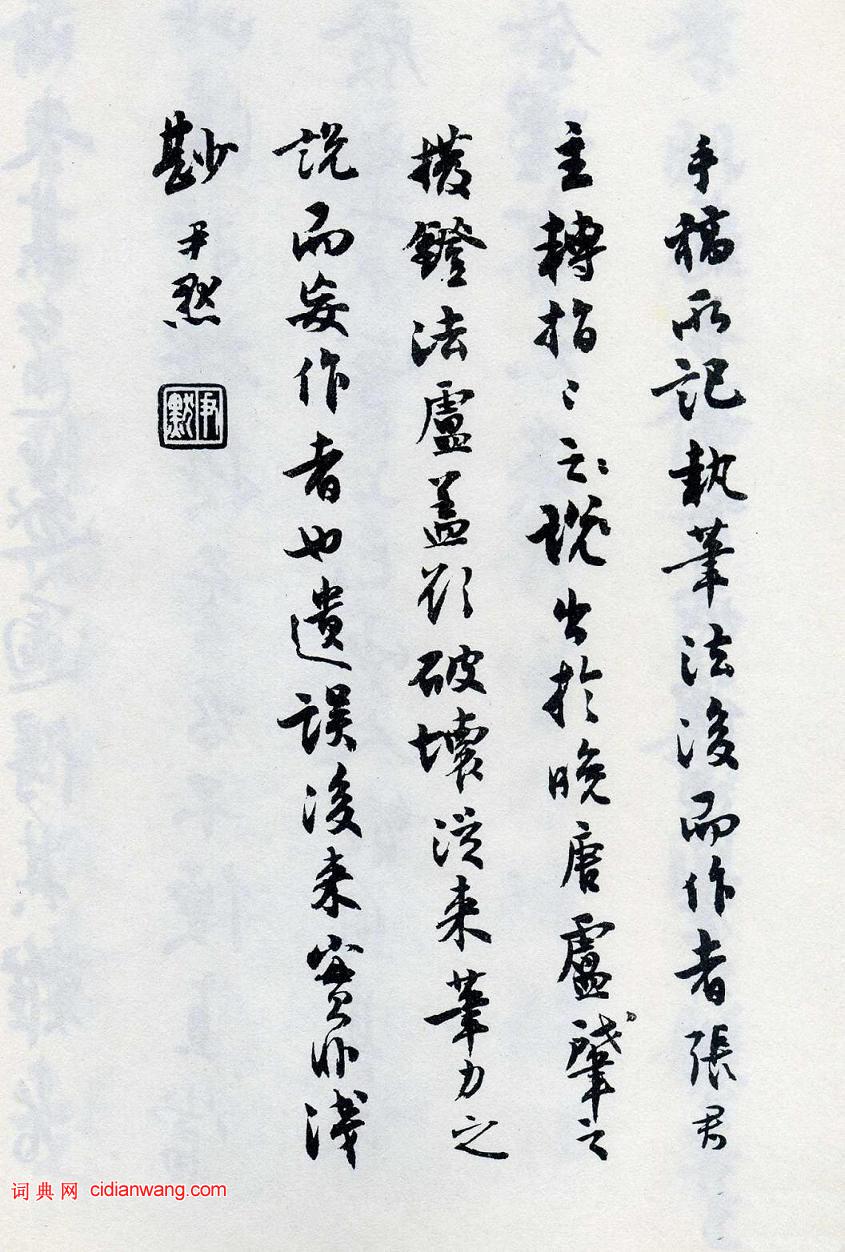 手稿所記執筆法後而作者張君
主轉指〻之〻說出於晚唐盧肇之
撥鐙法盧蓋欲破壞從來筆力之
說而妄作者也遺誤後來實非淺
尠 尹默
尹默
词典网 cidianwang.com